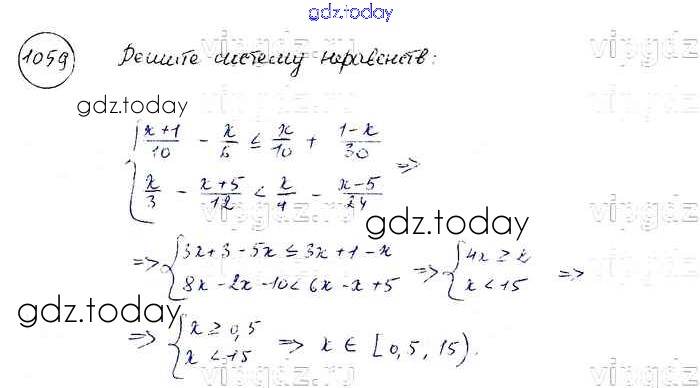 gdz.today
1059 Решите систему неравенств:
vipgdz.ru
gdz.today
{ (x+1)/10 - x/6 ≤ x/10 + (1-x)/30
{ x/3 - (x+5)/12 < x/4 - (x-5)/24 =>
gdz.today
=> { 3x+3-5x ≤ 3x+1-x => { 4x ≥ 2 =>
{ 8x-2x-10 < 6x-x+5 { x < 15
gdz.today
=> { x ≥ 0,5 => x ∈ [0,5, 15).
{ x < 15